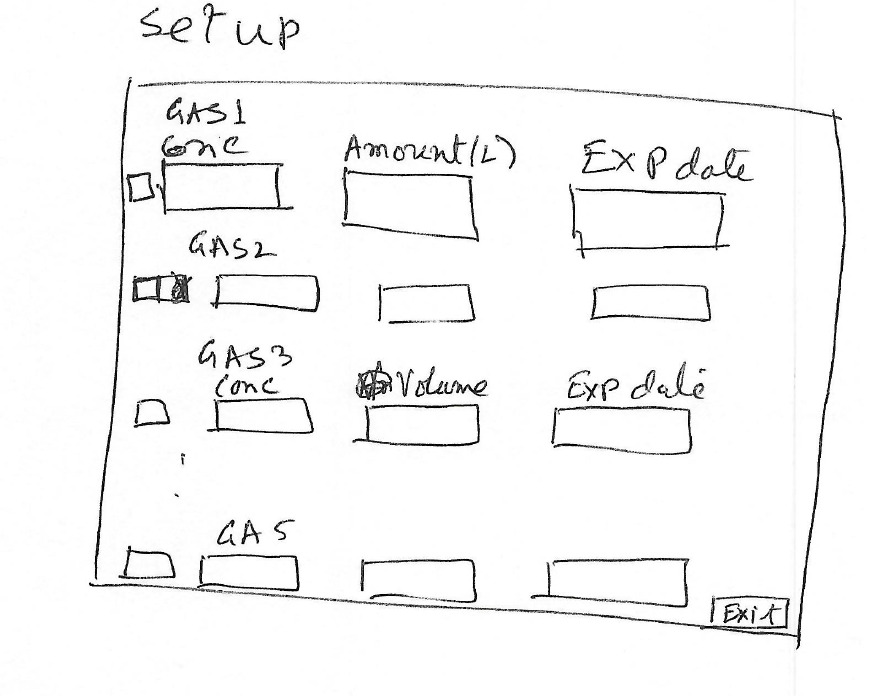 setup
GAS1
Conc Amount(L) Exp date
GAS2
GAS3
Conc Volume Exp date
GAS
Exit